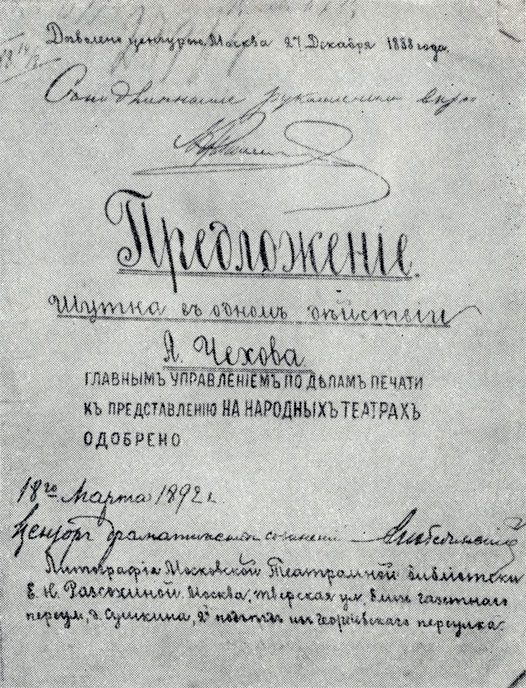 Дозволено цензурою. Москва 27 Декабря 1888 года.
рукописными верно
Предложеніе.
Шутка въ одномъ дѣйствіи
А. Чехова.
ГЛАВНЫМЪ УПРАВЛЕНІЕМЪ ПО ДѢЛАМЪ ПЕЧАТИ
КЪ ПРЕДСТАВЛЕНІЮ НА НАРОДНЫХЪ ТЕАТРАХЪ
ОДОБРЕНО
18го Марта 1892 г.
Цензоръ драматическихъ сочиненій
Литографія Московской Театральной библіотеки
Е. Н. Разсохиной. Москва, Тверская ул. близь газетнаго
переул., д. Сушкина, 2й подъѣздъ изъ Георгіевскаго переулка.